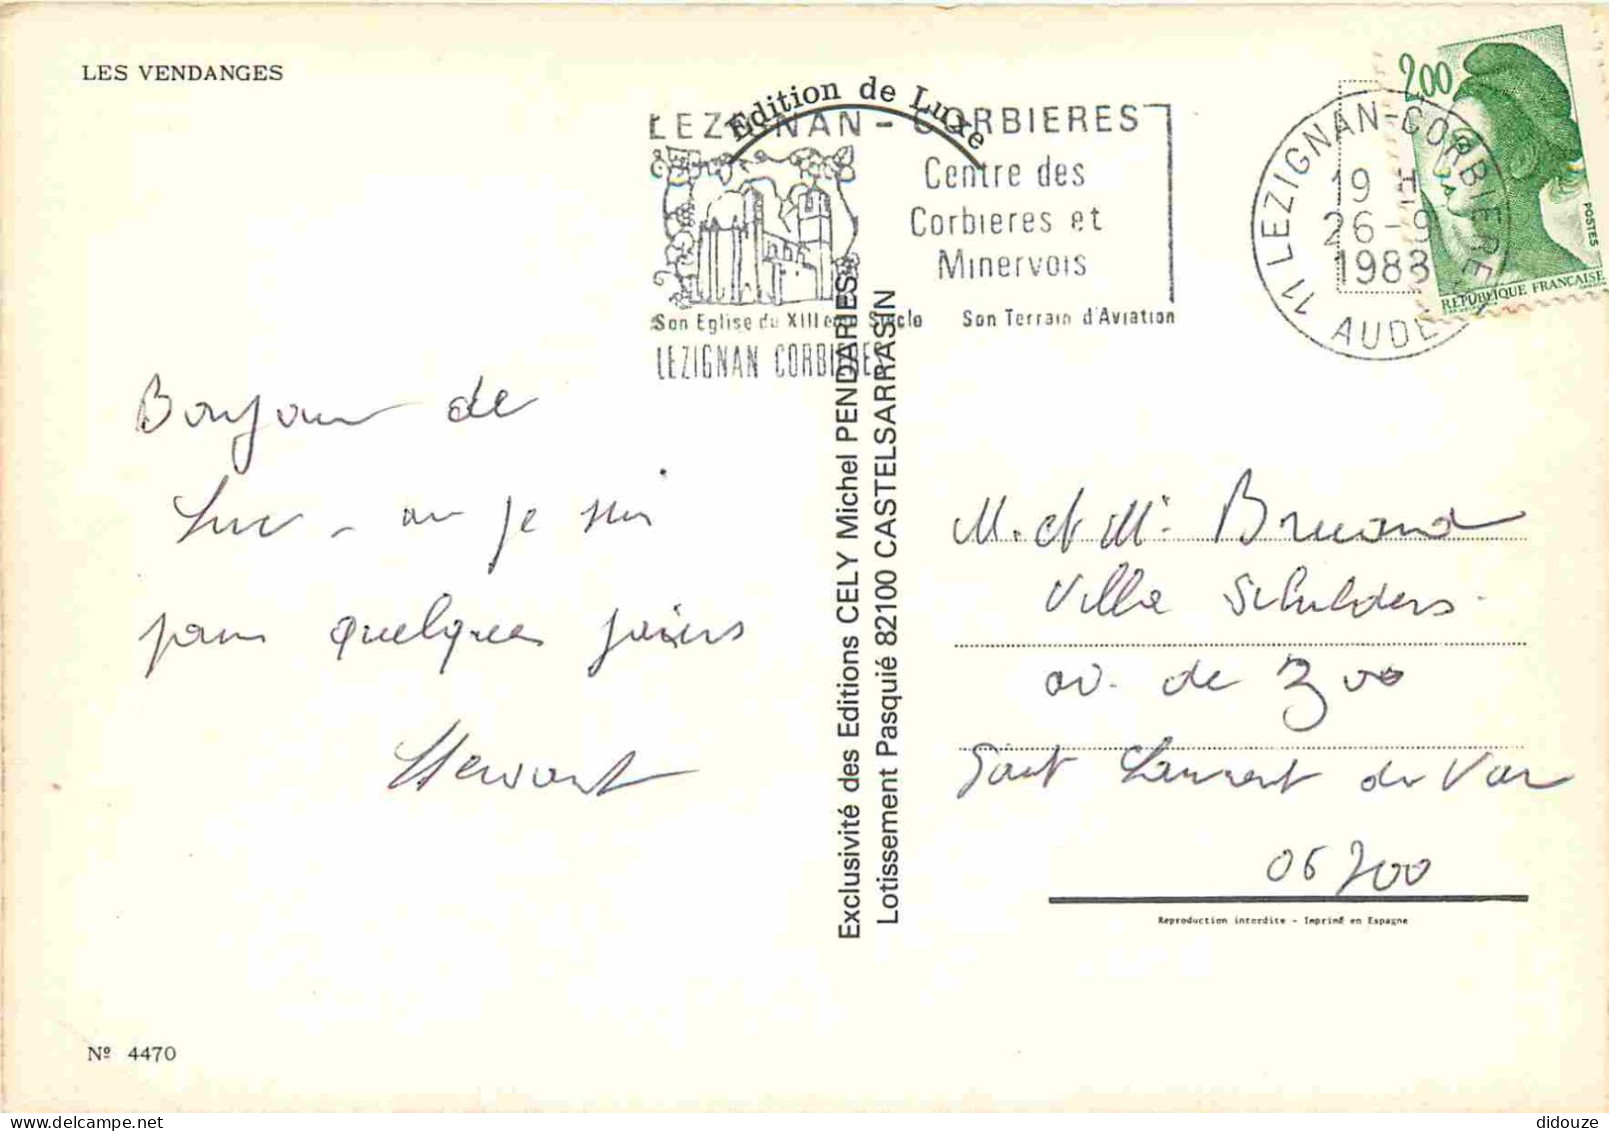 LES VENDANGES
Edition de Luxe
LEZIGNAN - CORBIERES
Centre des
Corbieres et
Minervois
Son Eglise du XIII eme Siècle Son Terrain d'Aviation
LEZIGNAN CORBIERES
11 LEZIGNAN-CORBIERES
19 H
26-9
1988
AUDE
2,00
POSTES
RÉPUBLIQUE FRANÇAISE
Bonjour de
Luc - ou je suis
pour quelques jours
M. et Me Bruand
Villa Schilders
av. de Zoo
Saint Laurent du Var
06700
Exclusivité des Editions CELY Michel PENDARIES
Lotissement Pasquié 82100 CASTELSARRASIN
Reproduction interdite - Imprimé en Espagne
Nº 4470
didouze